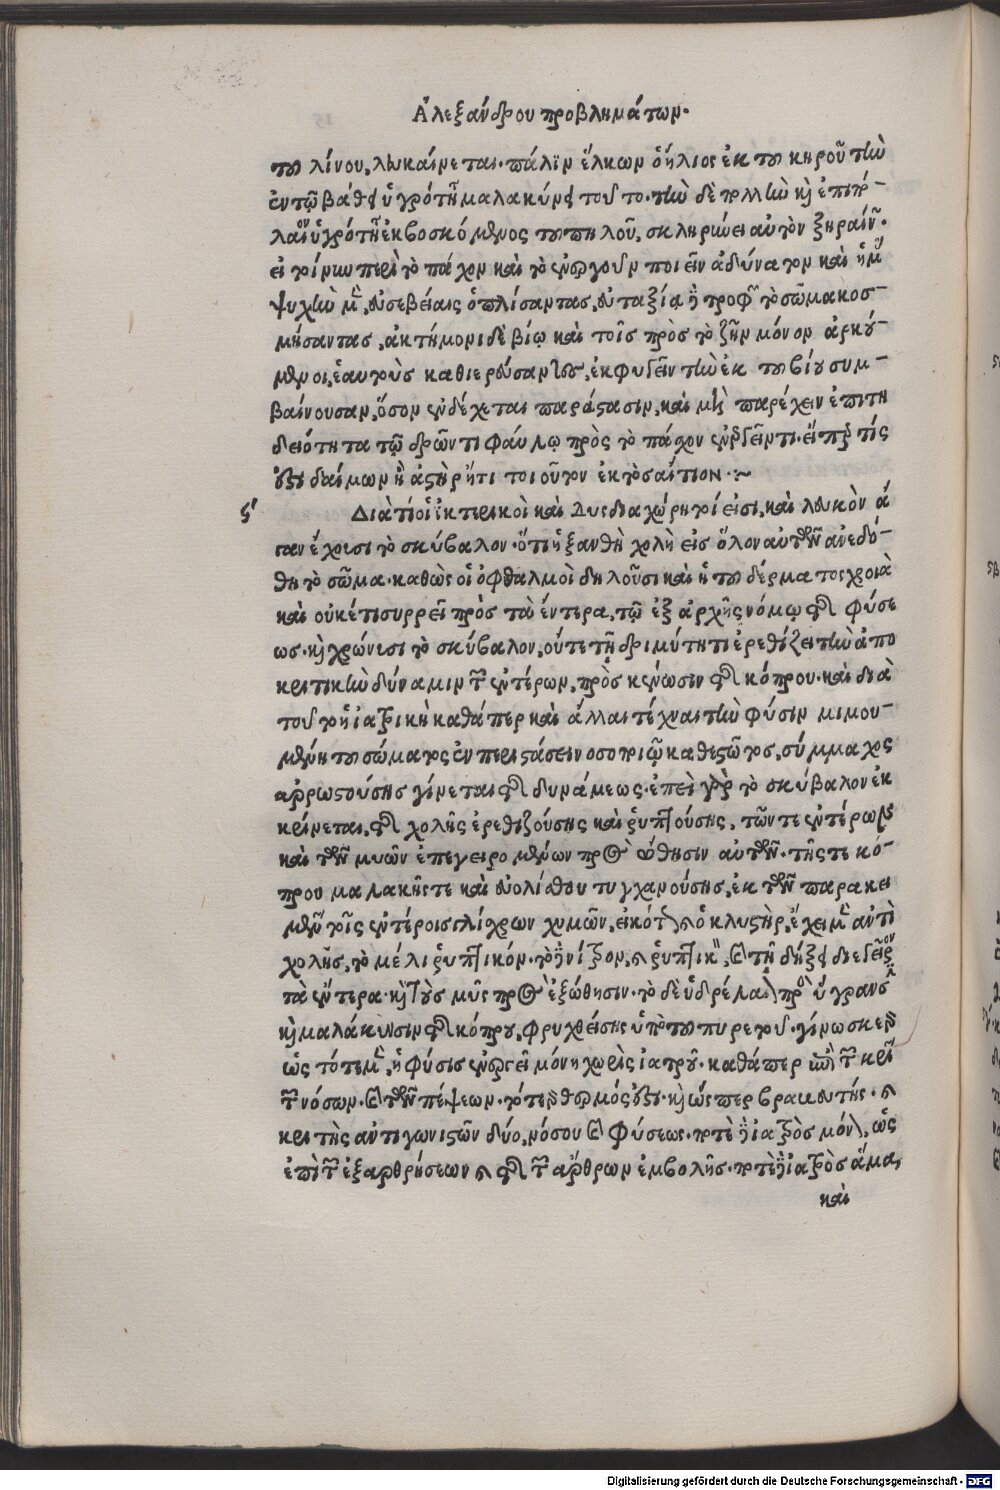 Ἀλεξάνδρου προβλημάτων.
του λίνου, λευκαίνεται. πάλιν ἕλκων ὁ ἥλιος ἐκ του κηροῦ τὴν
ἐν τῷ βάθει ὑγρότητα μαλακύνει τοῦτο. τὴν δὲ πολλὴν καὶ ἐπιπό-
λαιον ὑγρότητα ἐκβοσκόμενος του πηλοῦ, σκληρύνει αὐτὸν ξηραίνων.
εἰ τοίνυν περὶ τὸ πάσχον καὶ τὸ ἐνεργοῦν ποιεῖν ἀδύνατον καὶ ἡμᾶς
ψυχὴν μὲν, εὐσεβείαις ὁπλίσαντας, εὐταξίᾳ τροφῆς τὸ σῶμα κοσ-
μήσαντας, ἀκτήμονι δὲ βίῳ καὶ τοῖς πρὸς τὸ ζῆν μόνον ἀρκού-
μενοι, ἑαυτοὺς καθιερώσαντας, ἐκφυγεῖν τὴν ἐκ του βίου συμ-
βαίνουσαν, ὅσον ἐνδέχεται παράστασιν, καὶ μὴ παρέχειν ἐπιτη
δειότητα τῷ δρῶντι φαύλῳ πρὸς τὸ πάσχον εἴπερ τίς
ἐστι δαίμων ἢ ἀστὴρ ἤ τι τοιοῦτον ἐκτὸς αἴτιον.
ϛʹ Διὰ τί οἱ ἰκτερικοὶ καὶ δυσδιαχώρητοί εἰσι, καὶ λευκὸν ἅ
παν ἔχουσι τὸ σκύβαλον. ὅτι ἡ ξανθὴ χολὴ εἰς ὅλον αὐτῶν ἀνεδό-
θη τὸ σῶμα. καθὼς οἱ ὀφθαλμοὶ δηλοῦσι καὶ ἡ του δέρματος χροιὰ
καὶ οὐκέτι συρρεῖ πρὸς τὰ ἔντερα, τῷ ἐξ ἀρχῆς νόμῳ τῆς φύσε
ως. καὶ χρώννυσι τὸ σκύβαλον, οὔτε τῇ δριμύτητι ἐρεθίζει τὴν ἀπο
κριτικὴν δύναμιν τῶν ἐντέρων, πρὸς κένωσιν τῆς κόπρου. καὶ διὰ
τοῦτο ἡ ἰατρικὴ καθάπερ καὶ ἄλλαι τέχναι τὴν φύσιν μιμου-
μένη του σώματος ἐν περιστάσει νοσοποιῷ καθεστῶτος, σύμμαχος
ἀρρωστούσης γίνεται τῆς δυνάμεως. ἐπεὶ γὰρ τὸ σκύβαλον ἐκ
κρίνεται, τῆς χολῆς ἐρεθιζούσης καὶ ῥυπτούσης, τῶν τε ἐντέρων
καὶ τῶν μυῶν ἐπεγειρομένων πρὸς ὤθησιν αὐτῶν. τῆς τε κό-
πρου μαλακῆς τε καὶ εὐολίσθου τυγχανούσης, ἐκ τῶν παρακει
μένων τοῖς ἐντέροις γλίσχρων χυμῶν, εἰκότως ὁ κλυστὴρ, ἔχει μὲν ἀντὶ
χολῆς, τὸ μέλι ῥυπτικόν. τὸ νίτρον, ῥυπτικὸν, καὶ τῇ δήξει διεγεῖρον
τὰ ἔντερα. καὶ τοὺς μῦς πρὸς ἐξώθησιν. τὸ δὲ ὑδρέλαιον πρὸς ὕγρανσιν
καὶ μαλάκυνσιν τῆς κόπρου, φρυχθείσης ὑπὸ του πυρετοῦ. γίνωσκε δὲ
ὡς τότε μὲν, ἡ φύσις ἐνεργεῖ μόνη χωρὶς ἰατροῦ. καθάπερ ἐπὶ τῶν κρι
τῶν νόσων. καὶ τῶν πέψεων. τότε δὲ θεσμός ἐστι. καὶ ὥσπερ βραβευτής.
κριτὴς ἀνταγωνιστῶν δύο, νόσου καὶ φύσεως. ποτὲ ἰατρὸς μόνον, ὡς
ἐπὶ τῶν ἐξαρθρήσεων τῆς τῶν ἄρθρων ἐμβολῆς. ποτὲ ἰατρὸς ἅμα,
καὶ
Digitalisierung gefördert durch die Deutsche Forschungsgemeinschaft - DFG